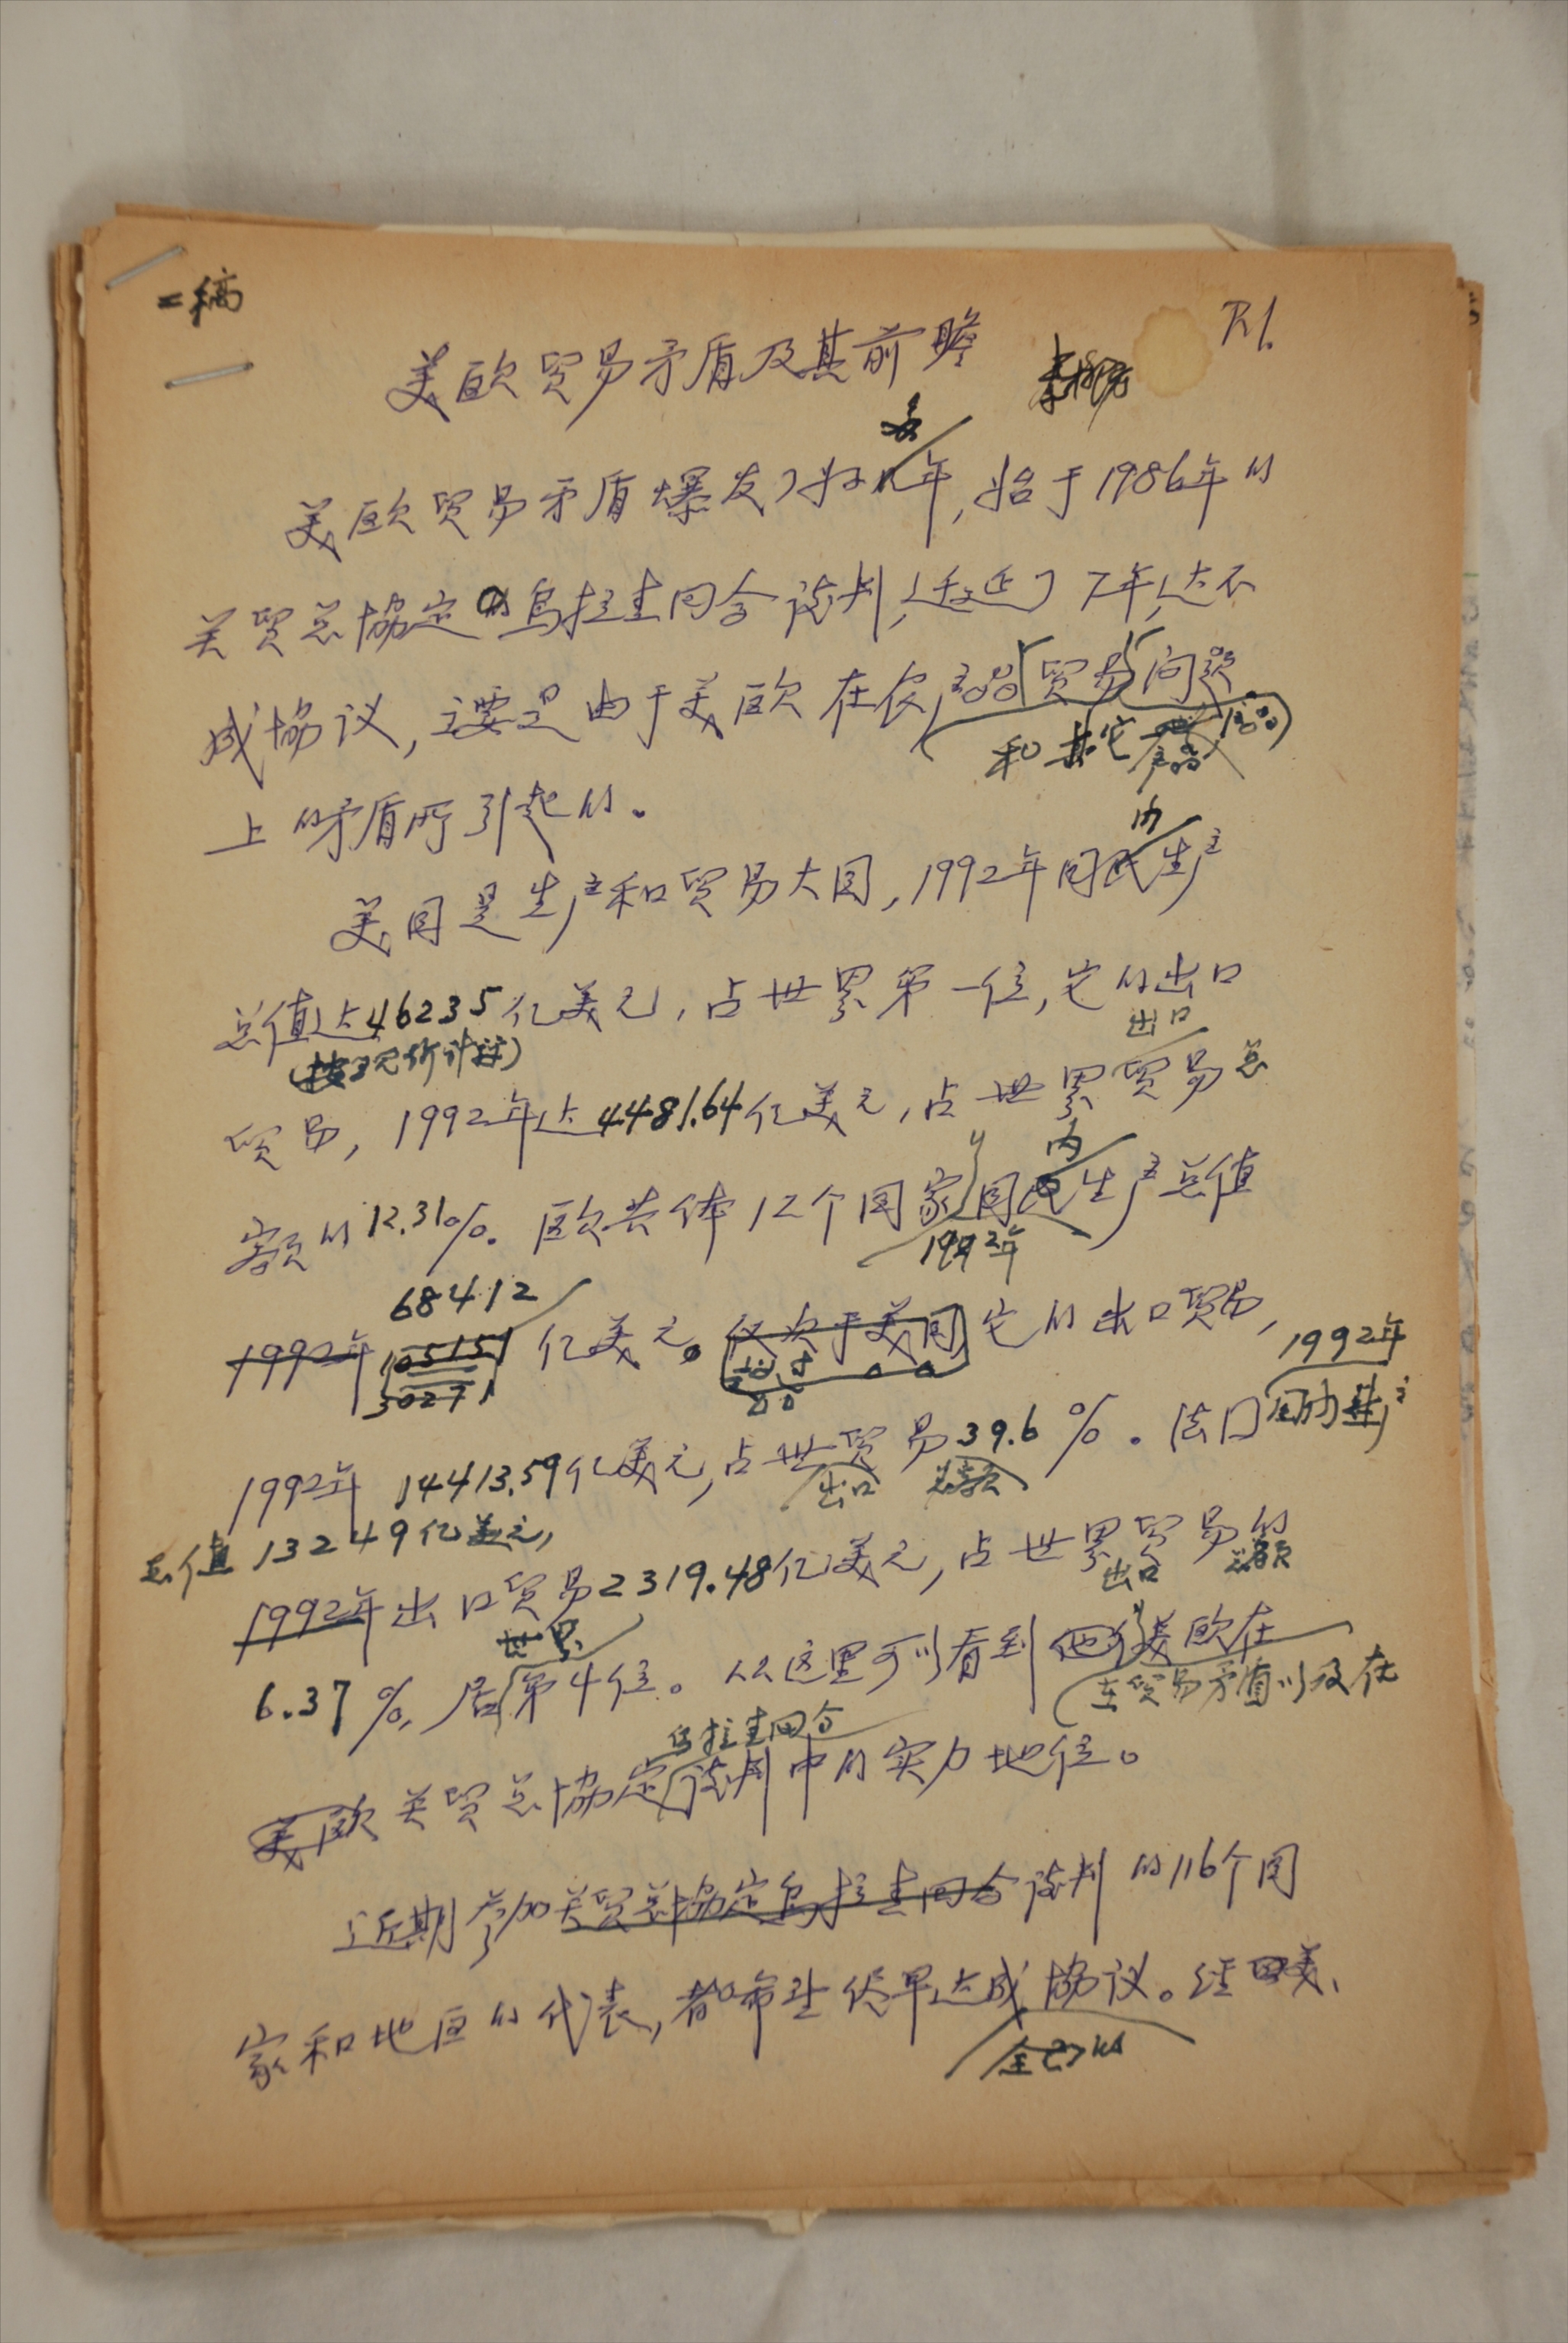 二稿
P.1.
美欧贸易矛盾及其前瞻
多
美欧贸易矛盾爆发了好几年,始于1986年的
关贸总协定的乌拉圭回合谈判,迁延了7年,达不
成协议,主要是由于美欧在农产品贸易问题
和其它产品
上的矛盾所引起的。
内
美国是生产和贸易大国,1992年国民生产
总值达46235亿美元,占世界第一位,它的出口
(按现价计算)
出口
贸易,1992年达4481.64亿美元,占世界贸易总
内
额的12.31%。欧共体12个国家国民生产总值
1992年
68412
1992年105151亿美元。仅次于美国它的出口贸易,
30271
1992年
1992年14413.59亿美元,占世贸易39.6%。法国国内生产
出口 总额
总值13249亿美元,
1992年出口贸易2319.48亿美元,占世界贸易的
出口 总额
世界
6.37%,居第4位。从这里可以看到他们美欧在
在贸易矛盾以及在
乌拉圭回合
美欧关贸总协定谈判中的实力地位。
近期参加关贸总协定乌拉圭回合谈判的116个国
家和地区的代表,都希望尽早达成协议。经美、
全面的